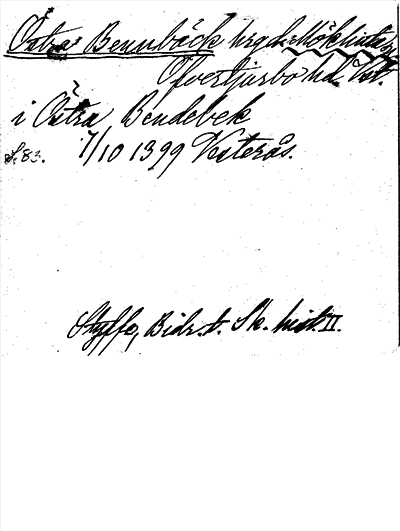 Östra Bennbäck hrgd. Möklinta sn
Öfvertjurbo hd. Vst.
i Östra Bendebek
S. 83. 7/10 1399 Vesterås.
Styffe, Bidr. t. Sk. hist. II.